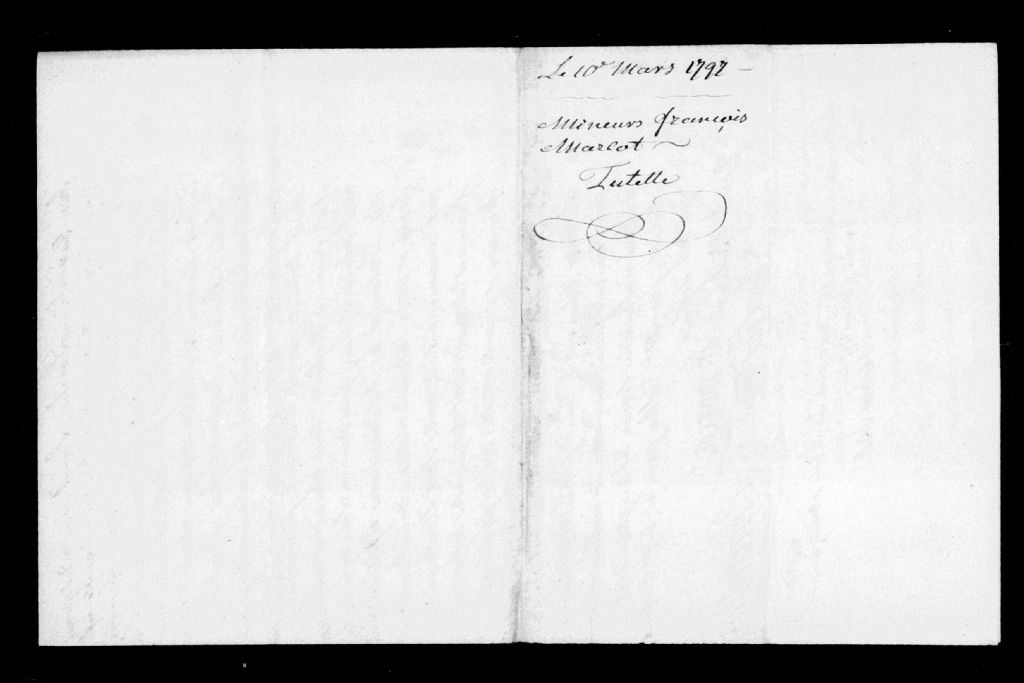 Le 10e Mars 1797 —
Mineurs françois
Marcot
Tutelle